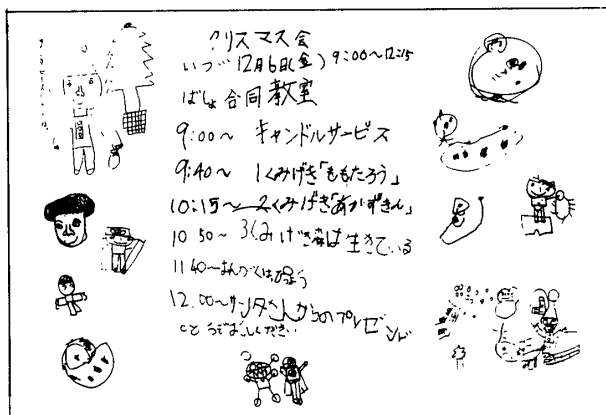 クリスマス会
いつ 12月6日(金) 9:00〜12:15
ばしょ 合同教室
9:00〜 キャンドルサービス
9:40〜 1くみげき「ももたろう」
10:15〜 2くみげき「あかずきん」
10 50〜 3くみげき 森は生きている
11 40〜
12.00〜サンタさんからのプレゼント